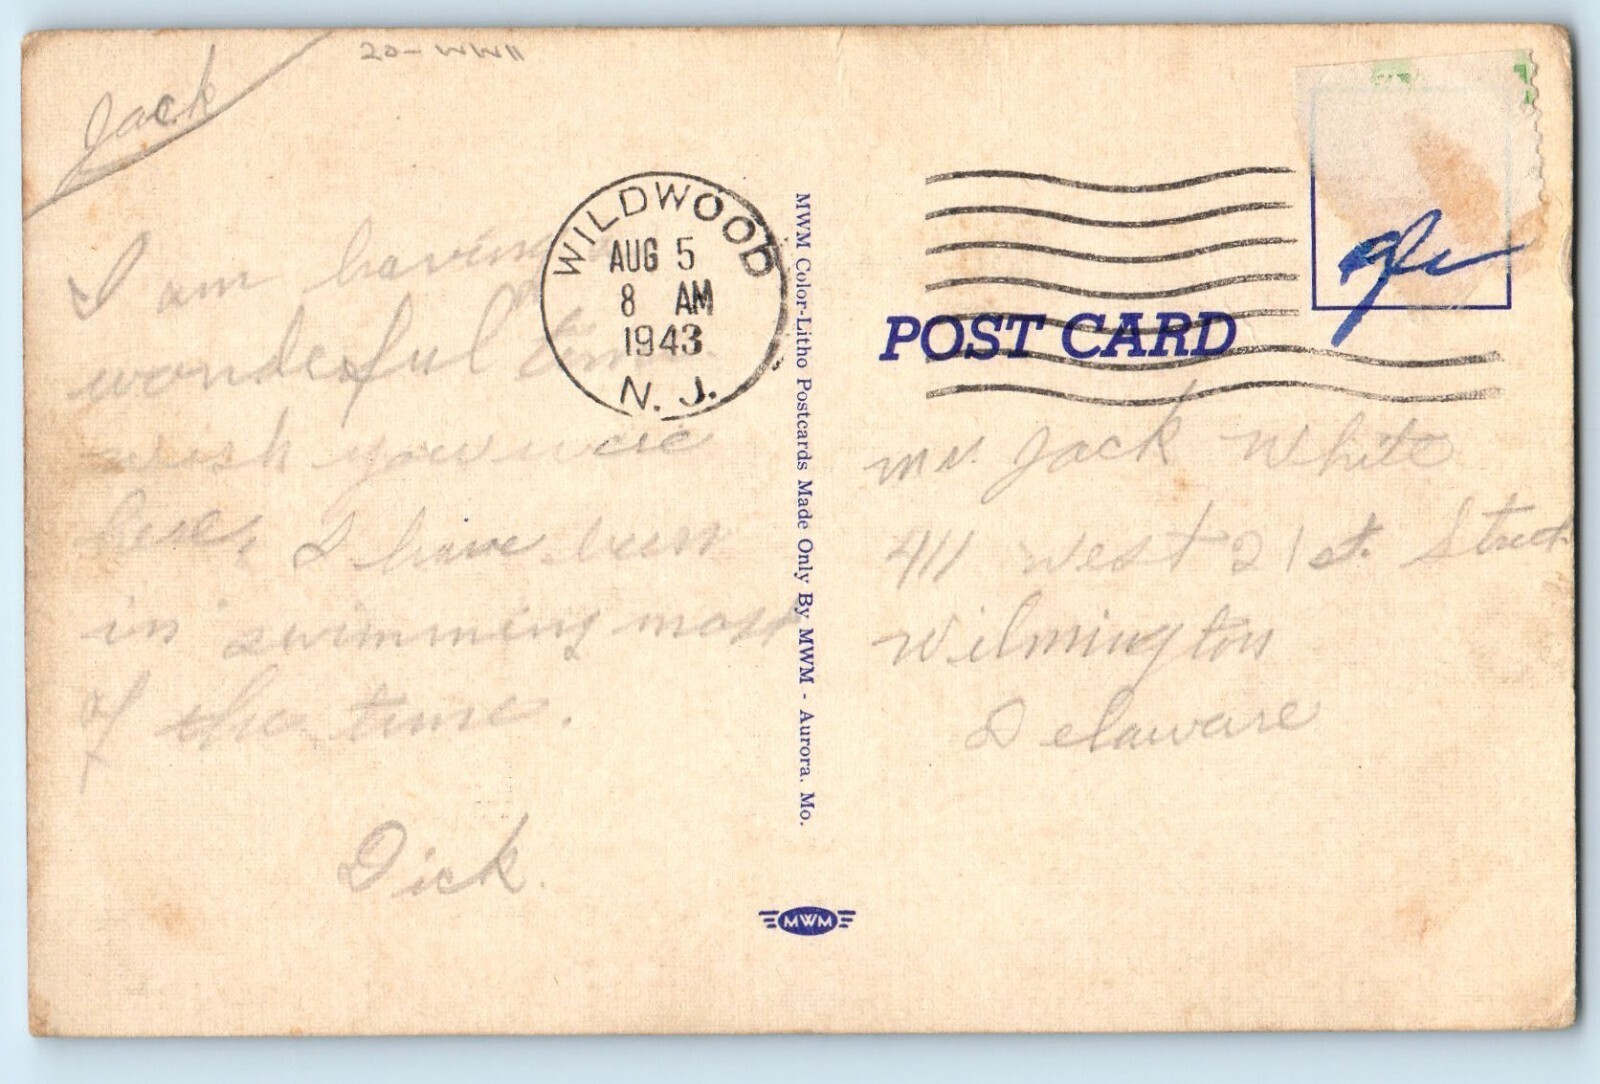 Jack
20- WWII
I am having a
wonderful time.
wish you were
here, I have been
in swimming most
of the time.
Dick.
WILDWOOD
AUG 5
8 AM
1943
N. J.
MWM Color-Litho Postcards Made Only By MWM - Aurora. Mo.
MWM
POST CARD
Mr. Jack White
411 West 21 st. Street
Wilmington
Delaware